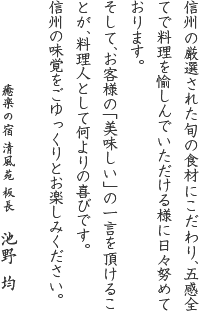 信州の厳選された旬の食材にこだわり、五感全
てで料理を愉しんでいただける様に日々努めて
おります。
そして、お客様の「美味しい」の一言を頂けるこ
とが、料理人として何よりの喜びです。
信州の味覚をごゆっくりとお楽しみください。
癒楽の宿 清風苑 板長 池野 均